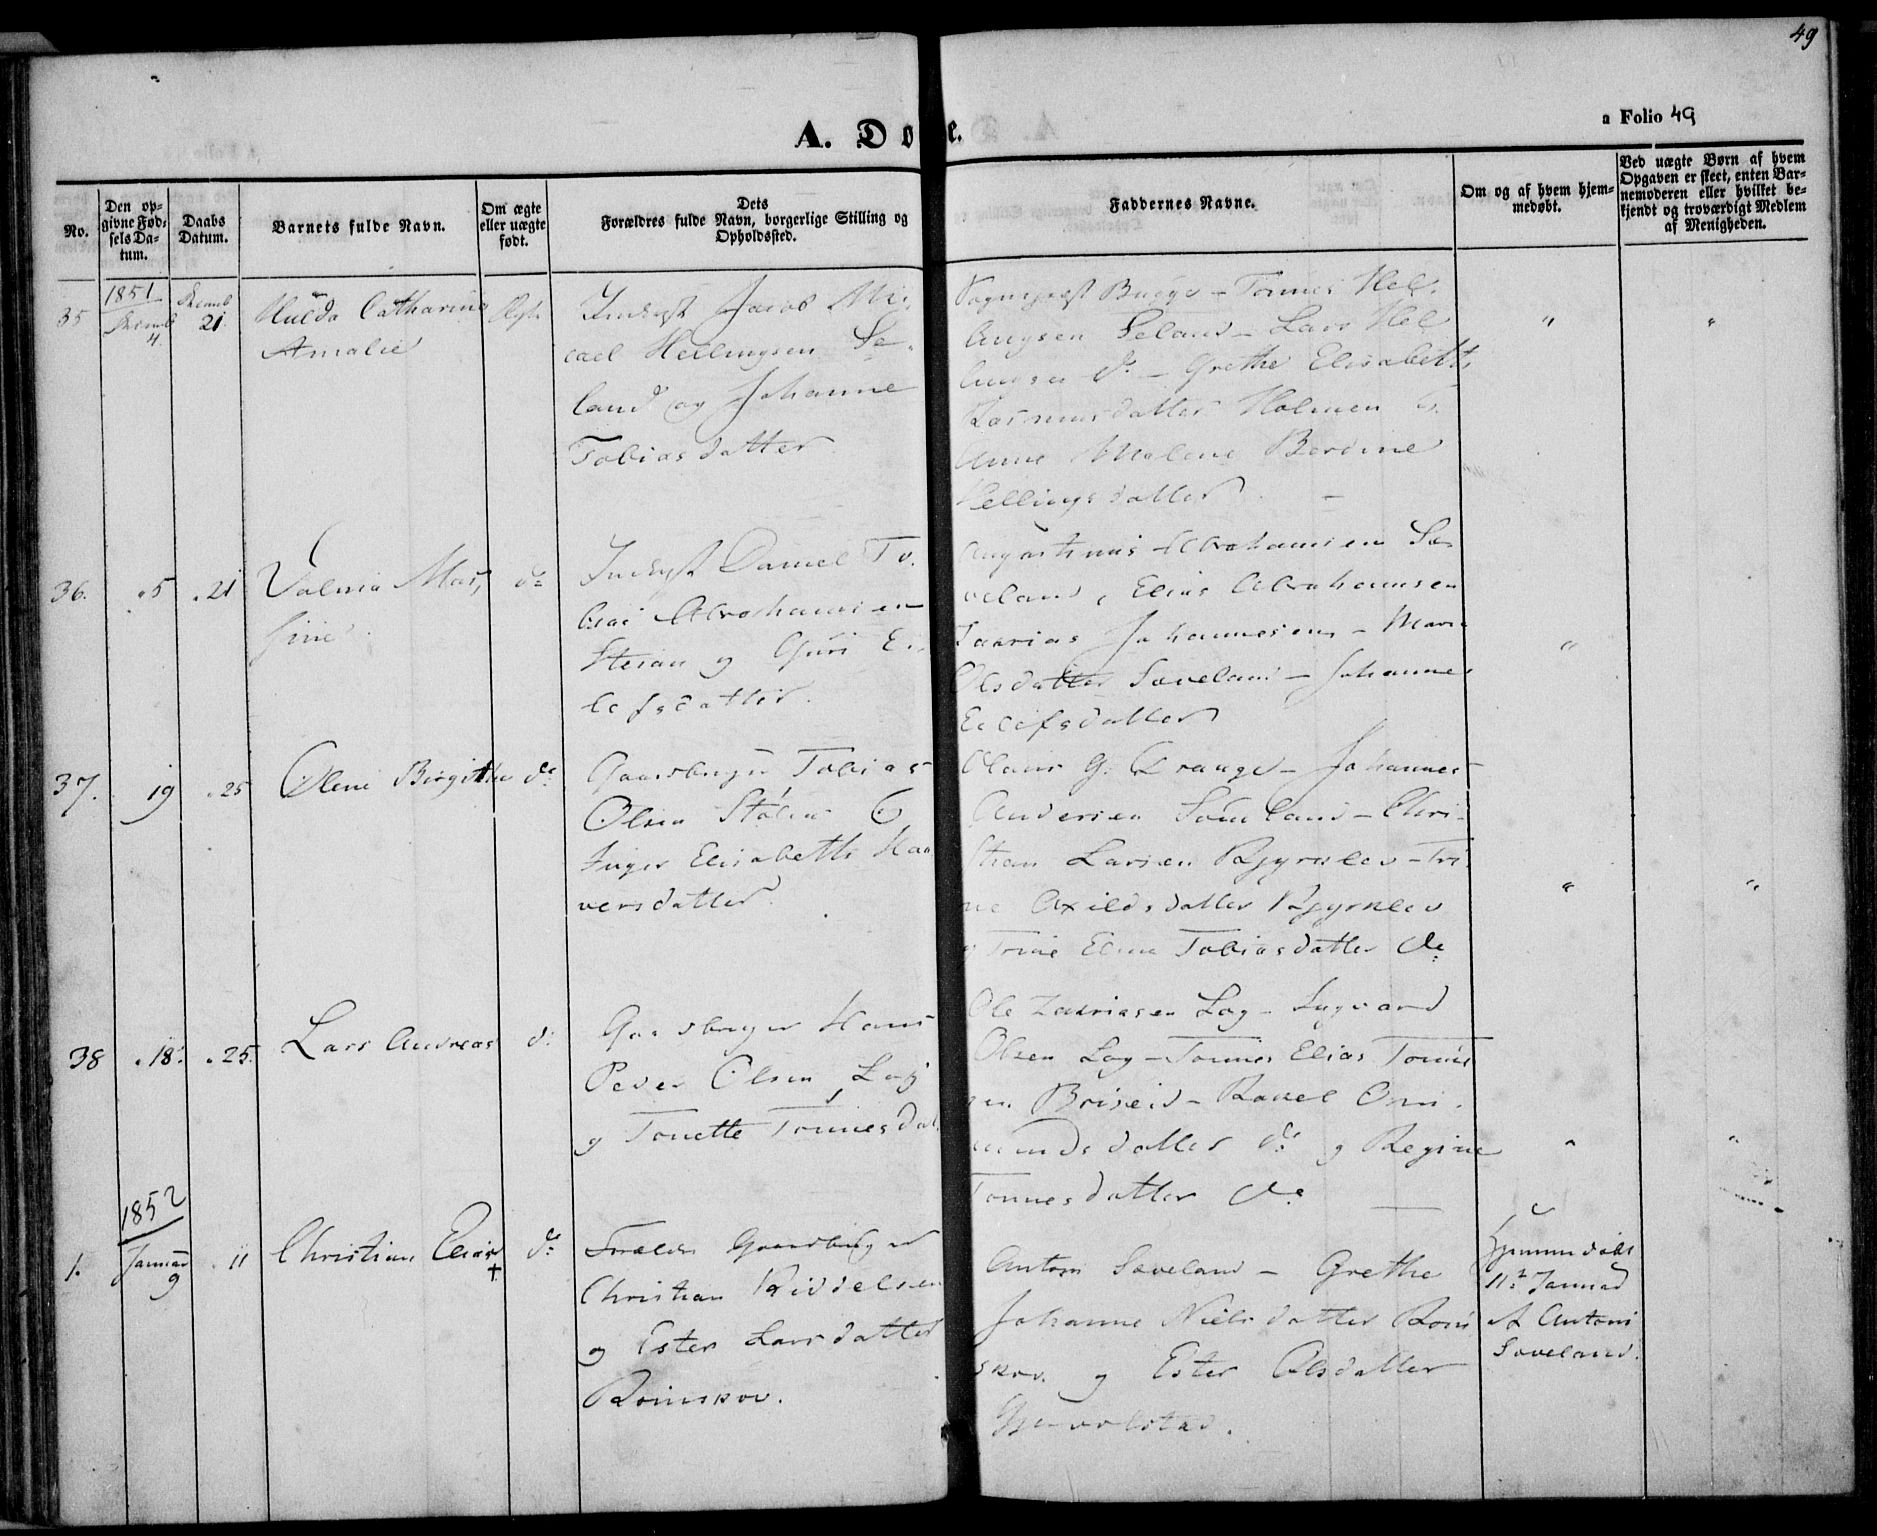 49
A. Døbte.
a Folio 49
No.
Den op-
givne Fød-
sels Da-
tum.
Daabs
Datum.
Barnets fulde Navn.
Om ægte
eller uægte
født.
Dets
Forældres fulde Navn, borgerlige Stilling og
Opholdssted.
Faddernes Navne.
Om og af hvem hjem-
medøbt.
Ved uægte Børn af hvem
Opgaven er skeet, enten Bar-
nemoderen eller hvilket be-
kjendt og troværdigt Medlem
af Menigheden.
1851
35
Decemb
4.
Decemb
21.
Hulda Catharina
Amalie
Ægte
Inderst Jacob Mi-
cael Hellingsen Se-
land og Johanne
Tobiasdatter
Sognepræst Bugge – Tønnes Hel-
lingsen Seland – Lars Hel
lingsen do – Grethe Elisabeth
Rasmusdatter Holmen &
Anne Malene Berdine
Hellingsdatter –
"
"
36.
" 5
" 21
Valnia Mat,
hine
do
Inderst Daniel To-
bias Abrahamsen
Steian og Guri Ei-
lefsdatter.
Augustinus Abrahamsen Sø-
veland, Elias Abrahamsen
Zacrias Johannesen – Maria
Olsdatter Søveland – Johanne
Eilefsdatter
"
37.
19
" 25
Olene Birgithe
do
Gaardbruger Tobias
Olsen Stølen &
Inger Elisabeth Haa
versdatter.
Olaus G. Drange – Johannes
Andersen Sømeland – Chri-
stian Larsen Kjyrklev – Tri-
ne Axildsdatter Kjyrklev
g Trine Eline Tobiasdatter do
"
"
38
" 18.
" 25.
Lars Andreas
do
Gaardbruger Hans
Peder Olsen Lag
g Tonette Tønnesdat
Ole Zakriasen Lag – Sigvard
Olsen Lag – Tønnes Elias Tønnes
sen Briseid – Rakel Om-
mundsdatter do g Regine
Tønnesdatter do
"
"
1852
1.
Januar
9
" 11
Christian Elias +
do
Forældre Gaardbruger
Christian Kiddelsen
g Ester Larsdatter
Romskov.
Anton Søveland – Grethe
Johanne Nielsdatter Rom
skov. g Ester Olsdatter
Gjervolstad.
Hjemmedøbt
11te Januar
af Anton
Søveland.